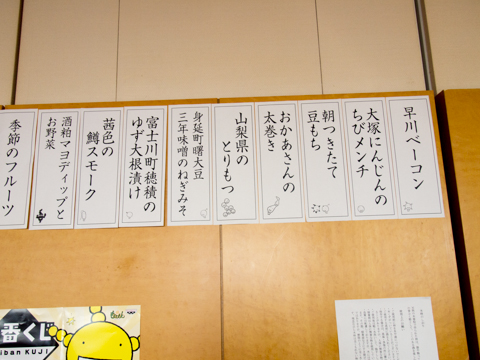 早川ベーコン
大塚にんじんの
ちびメンチ
朝つきたて
豆もち
おかあさんの
太巻き
山梨県の
とりもつ
身延町曙大豆
三年味噌のねぎみそ
富士川町穂積の
ゆず大根漬け
茜色の
鱒スモーク
酒粕マヨディップと
お野菜
季節のフルーツ
番くじ
iban KUJI